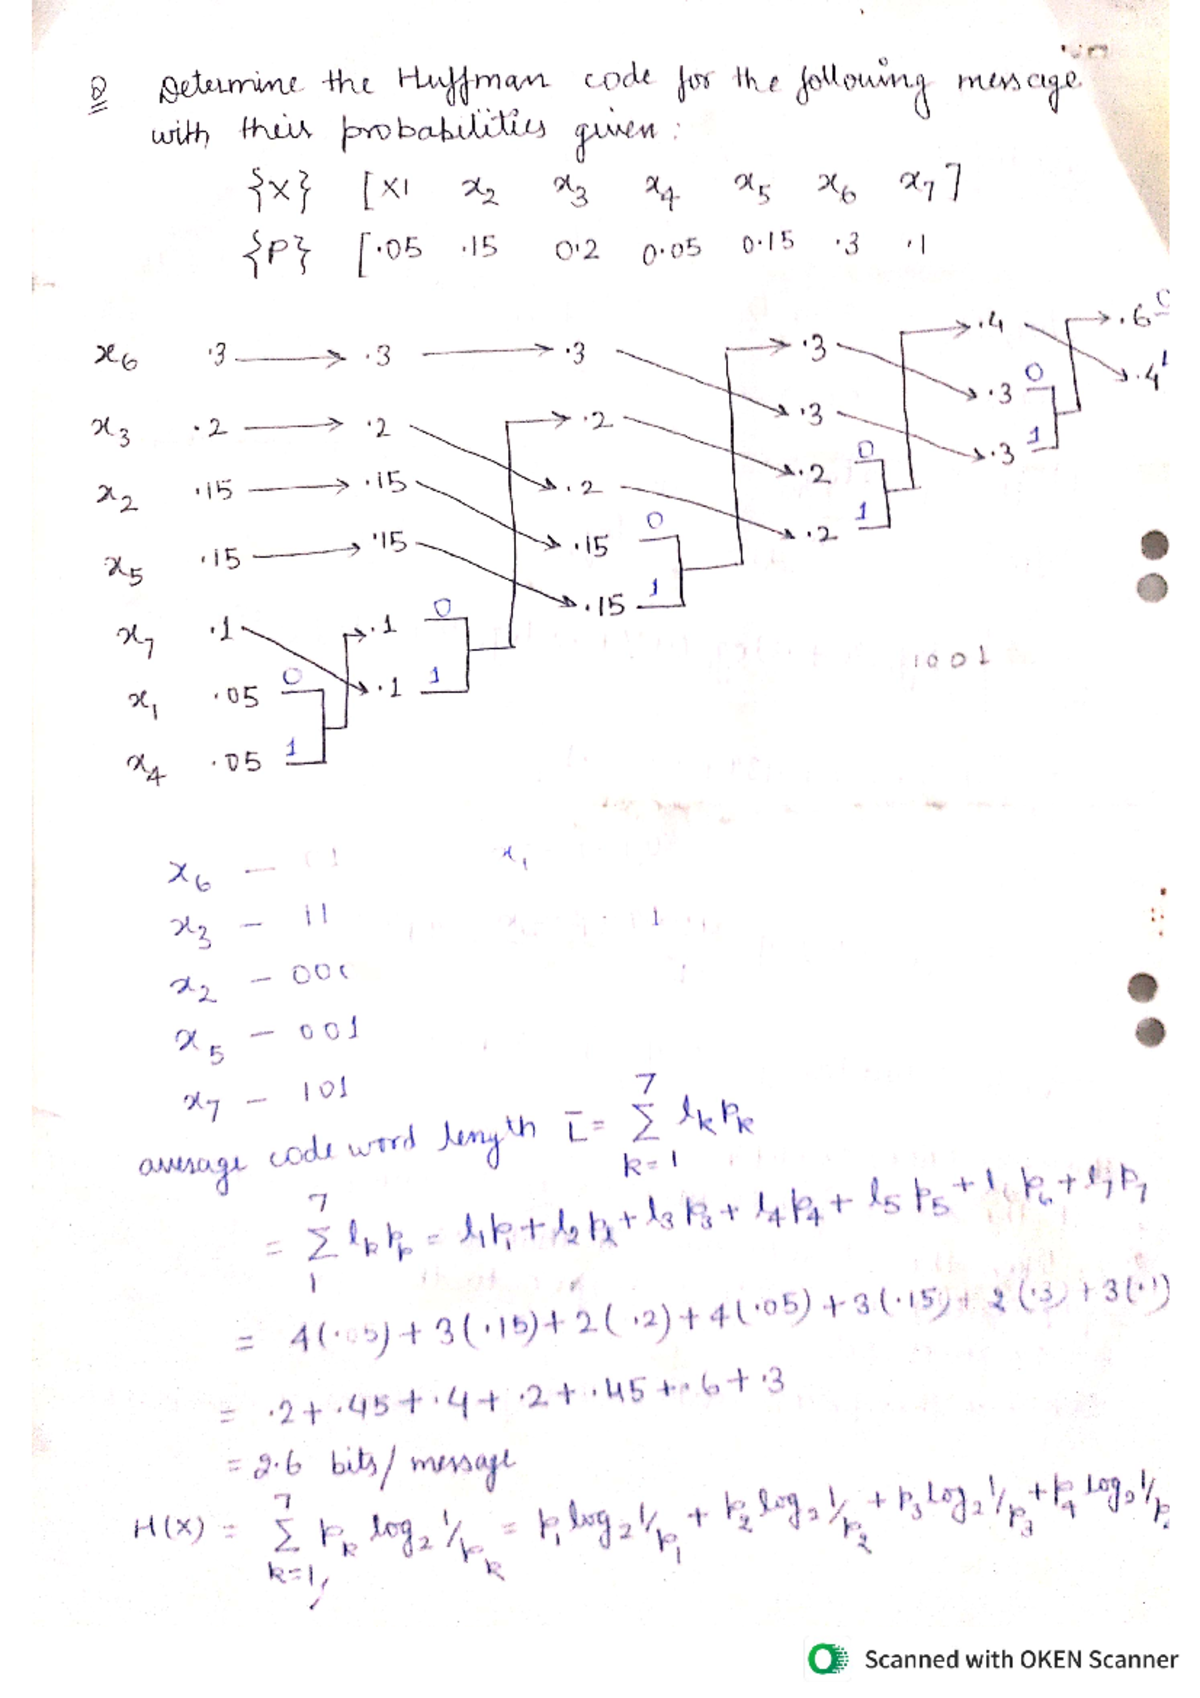 Q Determine the Huffman code for the following message
with their probabilities given:
{X} [x1 x2 x3 x4 x5 x6 x7]
{P} [.05 .15 0.2 0.05 0.15 .3 .1
x6 .3 .3 .3 .3 .4 .6 0
x3 .2 .2 .2 .3 .3 0 .4 1
x2 .15 .15 .2 .2 0 .3 1
x5 .15 .15 .15 0 .2 1
x7 .1 .1 0 .15 1
x1 .05 0 .1 1
x4 .05 1
1001
x6 –
x1
x3 – 11
1
x2 –
x5 – 001
x7 – 101
average code word length L̄ = 7 Σ k=1 lk pk
= 7 Σ 1 lk pk = l1p1 + l2p2 + l3p3 + l4p4 + l5p5 + l6p6 + l7p7
= 4(.05) + 3(.15) + 2(.2) + 4(.05) + 3(.15) + 2(.3) + 3(.1)
= .2 + .45 + .4 + .2 + .45 + .6 + .3
= 2.6 bits/message
H(X) = 7 Σ k=1 pk log2 1/pk = p1 log2 1/p1 + p2 log2 1/p2 + p3 log2 1/p3 + p4 log2 1/p
Scanned with OKEN Scanner